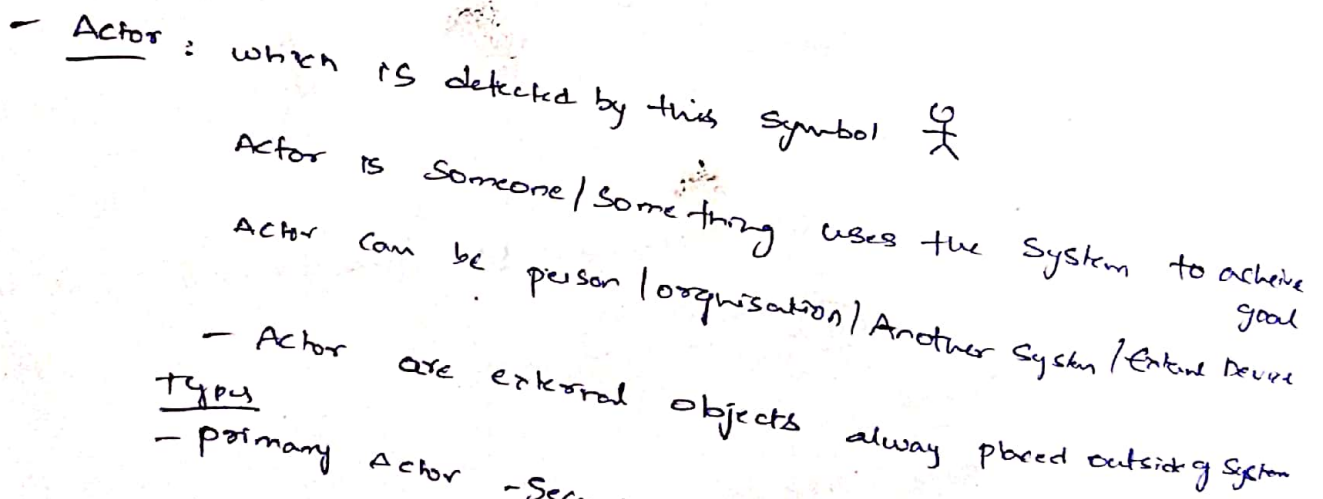 - Actor : which is detected by this symbol
Actor is Someone / Some thing uses the System to acheive
goal
Actor can be person / orgnisation / Another System / External Device
- Actor are external objects alway placed outside of System
Types
- primary Actor - Sec